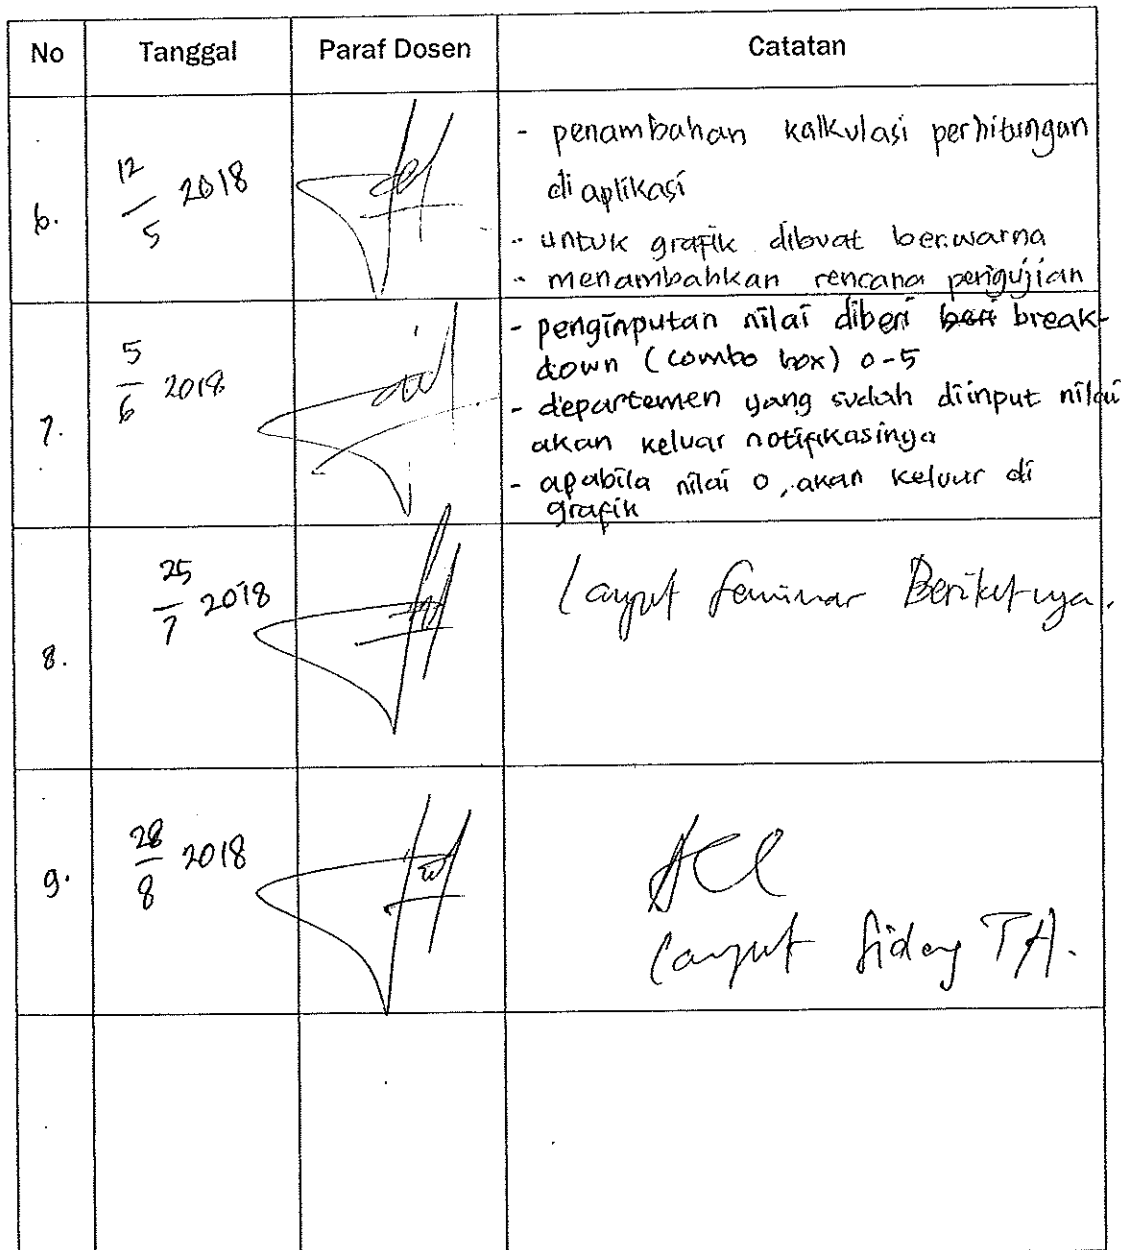 No Tanggal Paraf Dosen Catatan
6. 12/5 2018
- penambahan kalkulasi perhitungan
di aplikasi
- untuk grafik dibuat berwarna
- menambahkan rencana pengujian
7. 5/6 2018
- penginputan nilai diberi beri break-
down (combo box) 0-5
- departemen yang sudah diinput nilai
akan keluar notifikasinya
- apabila nilai 0, akan keluar di
grafik
8. 25/7 2018
Lanjut Seminar Berikutnya.
9. 28/8 2018
ACC
Lanjut Sidang TA.